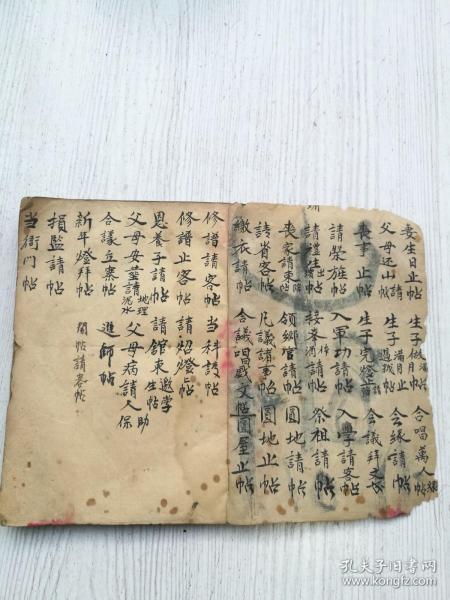 喪生日止帖 生子做月止 合唱萬人
父母还山帖 生子滿月止帖 会緣請帖
喪事止帖 生子完燈止 会議拜之帖
請祭旌帖 入軍功請帖 入學請客帖
請禮生帖 接眷請帖 祭祖請帖
喪家請束帖 領鄉官請帖 圓地請帖
請省客帖 凡議諸事帖 圓地止帖
繳衣請帖 合議唱戲文帖 圓屋止帖
修譜請客帖 当科請帖
修譜止客帖 請炤燈帖
恩養子請帖 請館東生帖 邀学助
父母安塟請地理泥水 父母病請人保
合議立案帖 進師帖
新年燈拜帖
損監請帖 開帖請客帖
当衙门帖
孔夫子旧书网
www.kongfz.com